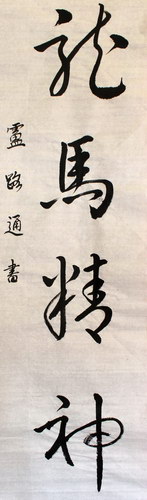 龍馬精神
盧路通書